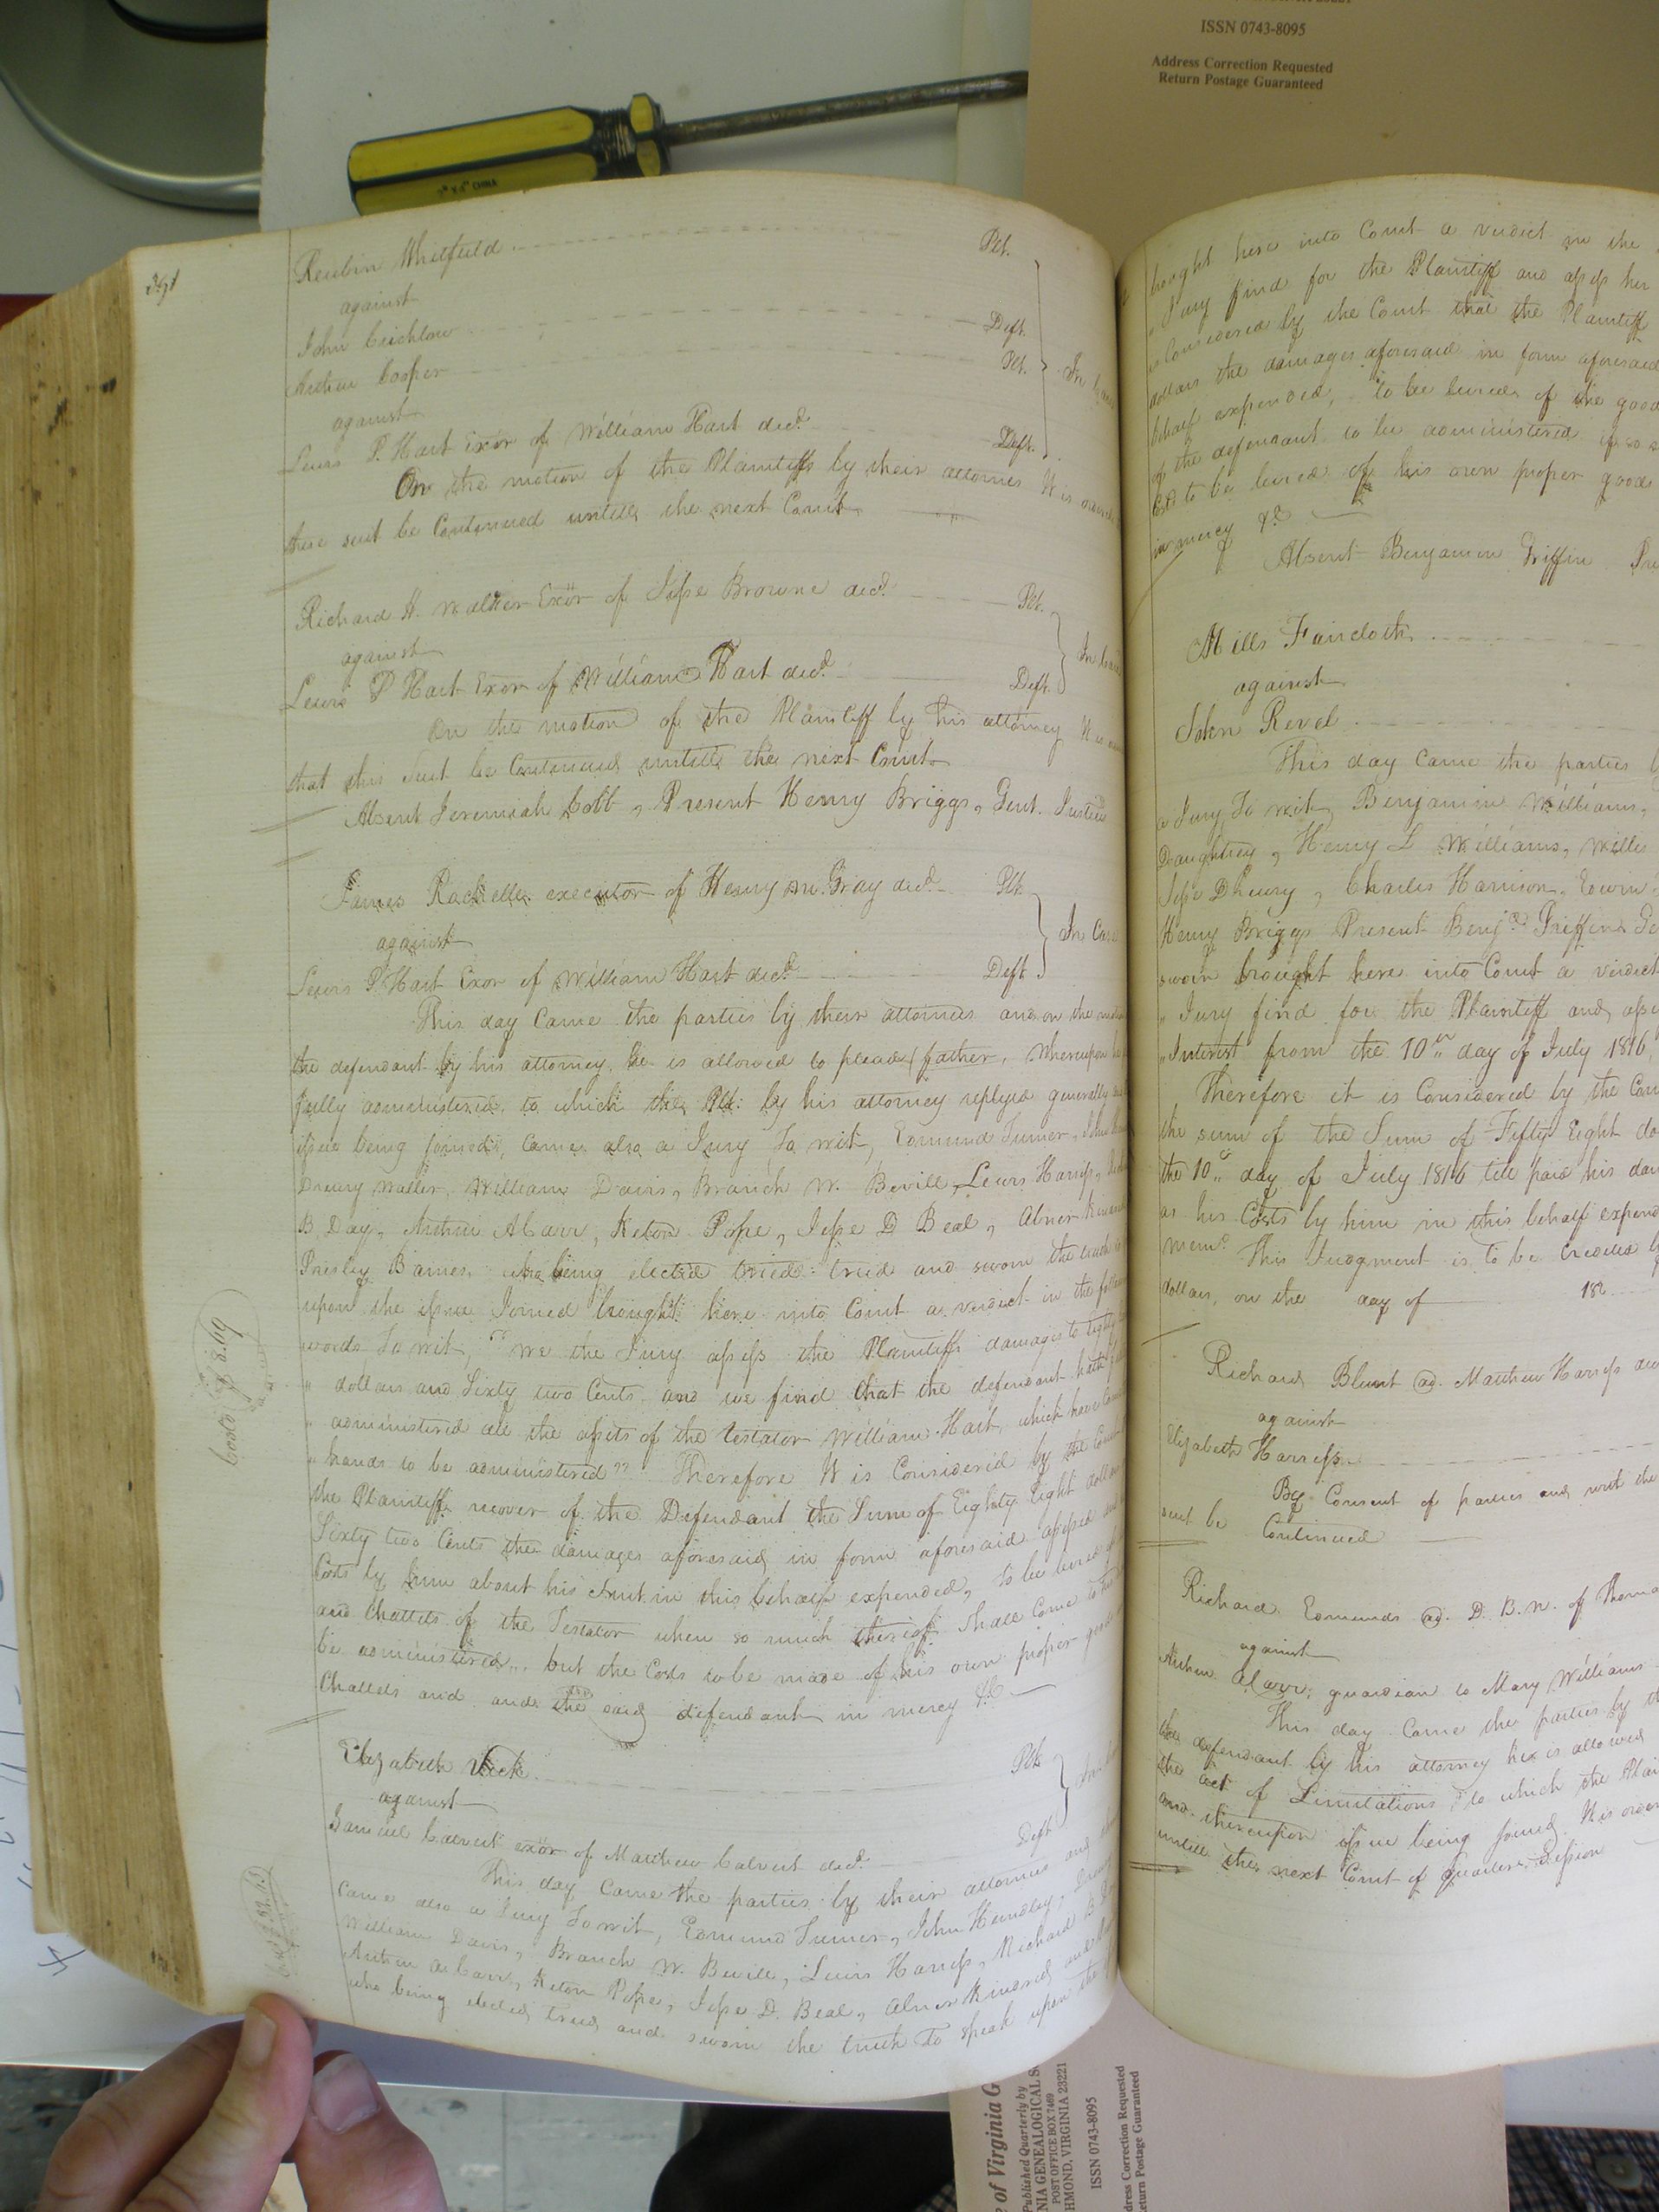 ISSN 0743-8095
Address Correction Requested
Return Postage Guaranteed
CHINA
Reubin Whitfield Plt.
against
John Crichlow Deft.
Arthur Cosper Plt.
against
Lewis P. Hart Exor of William Hart decd. Deft.
On the motion of the Plaintiffs by their attornies It is
these suit be Continued untill the next Court
Richard H. Walker Exor of Jesse Browne decd. Plt.
against
Lewis P Hart Exor of William Hart decd. Deft.
On the motion of the Plaintiff by his attorney
that this Suit be Continued untill the next Court
Absent Jeremiah Cobb, Present Henry Briggs, Gent. Justices
James Rochelle executor of Henry M. Gray decd. Plt In Case
against
Lewis P. Hart Exor of William Hart decd. Deft
This day Came the parties by their attornies and on the
the defendant by his attorney he is allowed to plead father, Whereupon
fully administered, to which the Plt. by his attorney replyed generally
issue being joined, came also a Jury To wit, Edmund Turner, John
Drewry Waller, William Davis, Branch W. Bevill, Lewis Harriss,
B Day, Arthur A Carr, Keton Pope, Jesse D Beal, Abner
Presley Barnes, who being elected tried: tried and sworn the truth
upon the issue Joined brought here into Court a verdict in the
words To wit, "we the Jury assess the Plaintiffs damages to
" dollars and Sixty two Cents and we find that the defendant hath
" administered all the assets of the testator William Hart, which have
" hands to be administered" Therefore It is Considered by the Court
the Plaintiff recover of the Defendant the Sum of Eighty Eight dollars
Sixty two Cents the damages aforesaid in form aforesaid assessed
Costs by him about his Suit in this behalf expended, to be levied
and Chattels of the Testator when so much thereof Shall Come to
be administered, but the Costs to be made of his own proper goods
Chattels and and the said defendant in mercy &c
Costs $8.69
Elizabeth Vick Plt
against
Samuel Calvert exor of Matthew Calvert decd. Deft
This day Came the parties by their attornies and
came also a Jury To wit, Edmund Turner, John Hundley, Drewry
William Davis, Branch W. Bevill, Lewis Harriss, Richard B
Arthur A Carr, Keton Pope, Jesse D. Beal, Abner Kindred and
who being elected, tried, and sworn the truth To speak upon the
brought here into Court a verdict in the
" Jury find for the Plaintiff and assess her
Considered by the Court that the Plaintiff
dollars the damages aforesaid in form aforesaid
behalf expended, to be levied of the good
of the defendant to be administered if so
to be levied of his own proper goods
in mercy &c
Absent Benjamin Griffin
Mills Faircloth
against
John Revel
This day Came the parties
a Jury To wit, Benjamin Williams,
Daughtrey, Henry L Williams, Willis
Jesse Charles Harrison, Edwin
Henry Briggs Present Benj. Griffin
sworn brought here into Court a verdict
" Jury find for the Plaintiff and
" Interest from the 10th day of July 1816
Therefore it is Considered by the
the sum of the Sum of Fifty Eight
the 10th day of July 1816 till paid his
as his Costs by him in this behalf
This Judgment is to be Credited
dollars, on the day of 182
Richard Blunt ad. Matthew Harriss
against
Elizabeth Harriss
By Consent of parties and with the
suit be Continued
Richard Edmunds ad. D. B. N. of
against
Arthur A Carr, guardian to Mary Williams
This day Came the parties by
the defendant by his attorney he is allowed
the act of Limitations to which the
and thereupon issue being joined It is
untill the next Court of Quarter Session
of Virginia
Published Quarterly by
POST OFFICE BOX 7469
VIRGINIA 23221
ISSN 0743-8095
Correction Requested
Postage Guaranteed